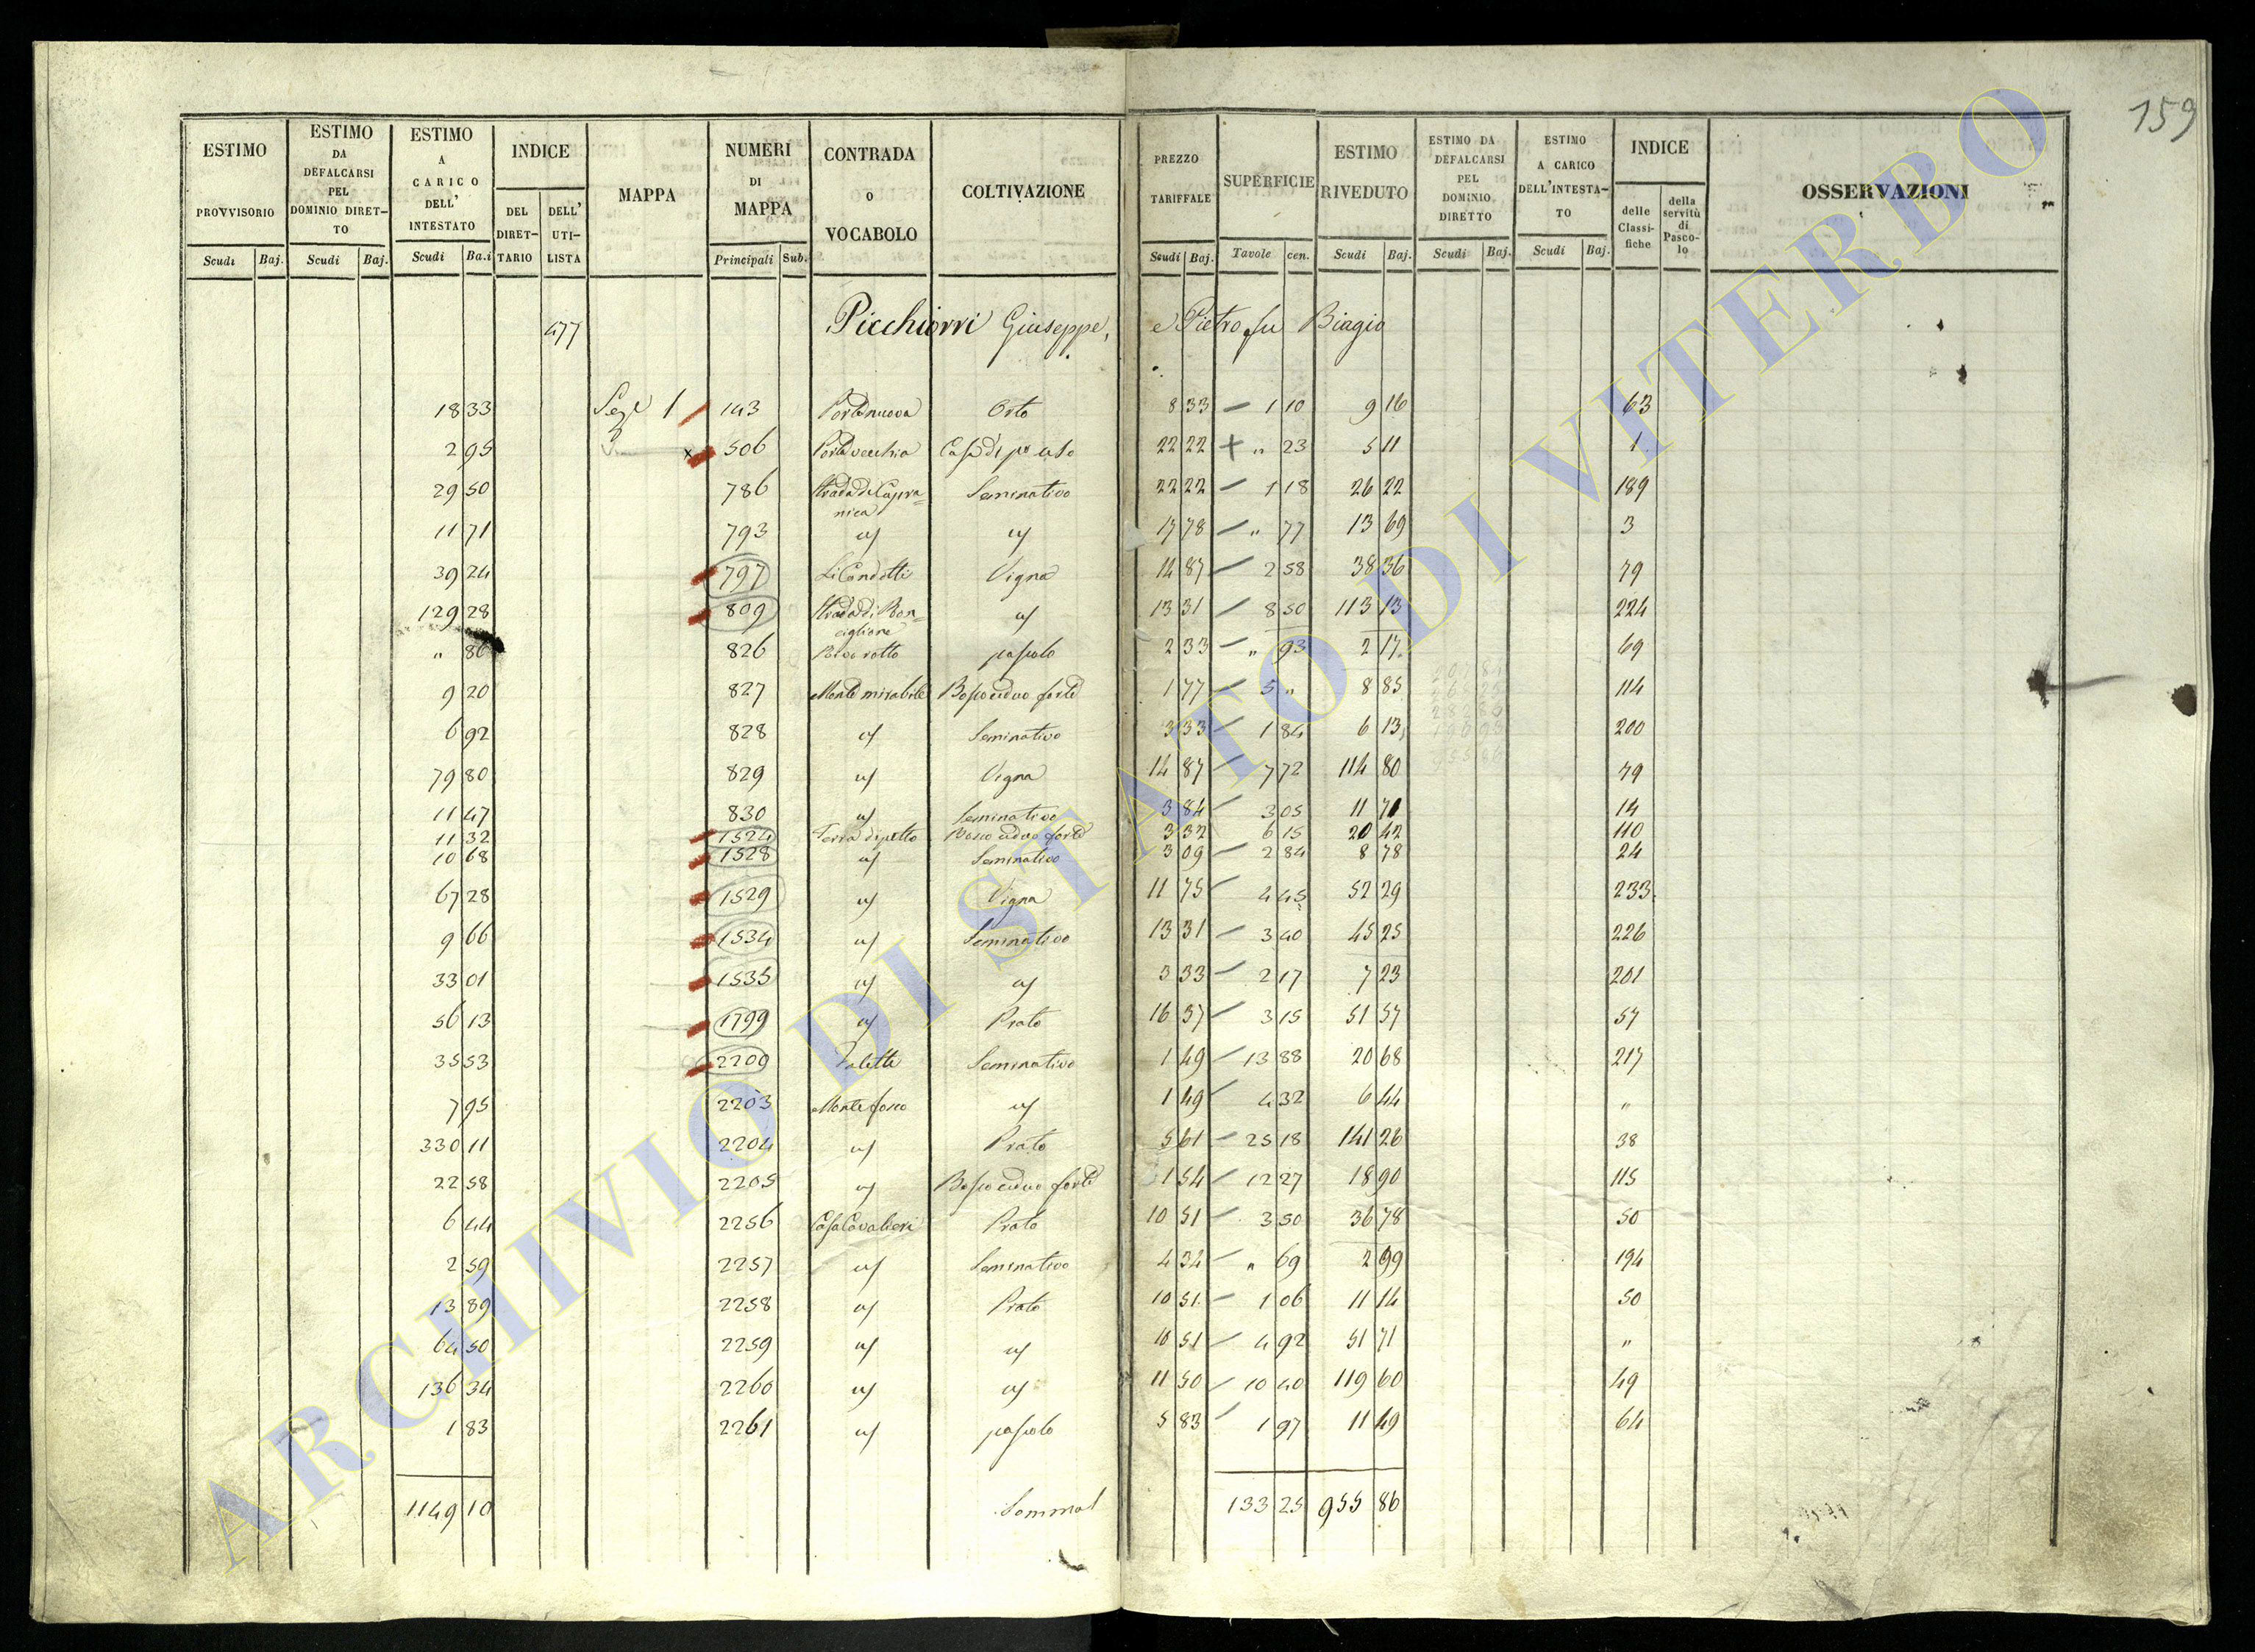 159
ESTIMO PROVVISORIO | ESTIMO DA DEFALCARSI PEL DOMINIO DIRET-TO | ESTIMO A CARICO DELL' INTESTATO | INDICE | MAPPA | NUMERI DI MAPPA | CONTRADA O VOCABOLO | COLTIVAZIONE | PREZZO TARIFFALE | SUPERFICIE | ESTIMO RIVEDUTO | ESTIMO DA DEFALCARSI PEL DOMINIO DIRETTO | ESTIMO A CARICO DELL'INTESTA-TO | INDICE | OSSERVAZIONI
Scudi Baj. | Scudi Baj. | Scudi Ba.i | DEL DIRET-TARIO | DELL' UTI-LISTA | Principali Sub. | Scudi Baj. | Tavole cen. | Scudi Baj. | Scudi Baj. | Scudi Baj. | delle Classi-fiche | della servitù di Pasco-lo
477 Picchiorri Giuseppe, e Pietro fu Biagio
18 33 | Seze 1 | 143 | Portanuova | Orto | 8 33 | 1 10 | 9 16 | 63
2 95 | x 506 | Porta vecchia | Casa di po uso | 22 22 | + " 23 | 5 11 | 1
29 50 | 786 | Strada di Capra=nica | Seminativo | 22 22 | 1 18 | 26 22 | 189
11 71 | 793 | " | " | 17 78 | " 77 | 13 69 | 3
39 24 | 797 | Li Condotti | Vigna | 14 87 | 2 58 | 38 36 | 79
129 28 | 809 | Strada di Ron=ciglione | " | 13 31 | 8 50 | 113 13 | 224
" 86 | 826 | rotto | pascolo | 2 33 | " 93 | 2 17 | 69
9 20 | 827 | Monte mirabile | Bosco ceduo forte | 1 77 | 5 " | 8 85 | 114
6 92 | 828 | " | Seminativo | 3 33 | 1 84 | 6 13 | 200
79 80 | 829 | " | Vigna | 14 87 | 7 72 | 114 80 | 79
11 47 | 830 | " | Seminativo | 3 84 | 3 05 | 11 71 | 14
11 32 | 1524 | Terra di petto | Bosco ceduo forte | 3 32 | 6 15 | 20 42 | 110
10 68 | 1528 | " | Seminativo | 3 09 | 2 84 | 8 78 | 24
67 28 | 1529 | " | Vigna | 11 75 | 4 45 | 52 29 | 233
9 66 | 1534 | " | Seminativo | 13 31 | 3 40 | 45 25 | 226
33 01 | 1535 | " | " | 3 33 | 2 17 | 7 23 | 201
56 13 | 1799 | " | Prato | 16 37 | 3 15 | 51 57 | 57
35 53 | 2200 | Valette | Seminativo | 1 49 | 13 88 | 20 68 | 217
7 95 | 2203 | Monte fosco | " | 1 49 | 4 32 | 6 44 | "
330 11 | 2204 | " | Prato | 5 61 | 25 18 | 141 26 | 38
22 58 | 2205 | " | Bosco ceduo forte | 1 54 | 12 27 | 18 90 | 115
6 44 | 2256 | Casa Cavalieri | Prato | 10 51 | 3 50 | 36 78 | 50
2 59 | 2257 | " | Seminativo | 4 34 | " 69 | 2 99 | 194
13 89 | 2258 | " | Prato | 10 51 | 1 06 | 11 14 | 50
64 50 | 2259 | " | " | 10 51 | 4 92 | 51 71 | "
136 34 | 2260 | " | " | 11 50 | 10 40 | 119 60 | 49
1 83 | 2261 | " | pascolo | 5 83 | 1 97 | 11 49 | 64
1149 10 | Somma | 133 25 | 955 86
ARCHIVIO DI STATO DI VITERBO